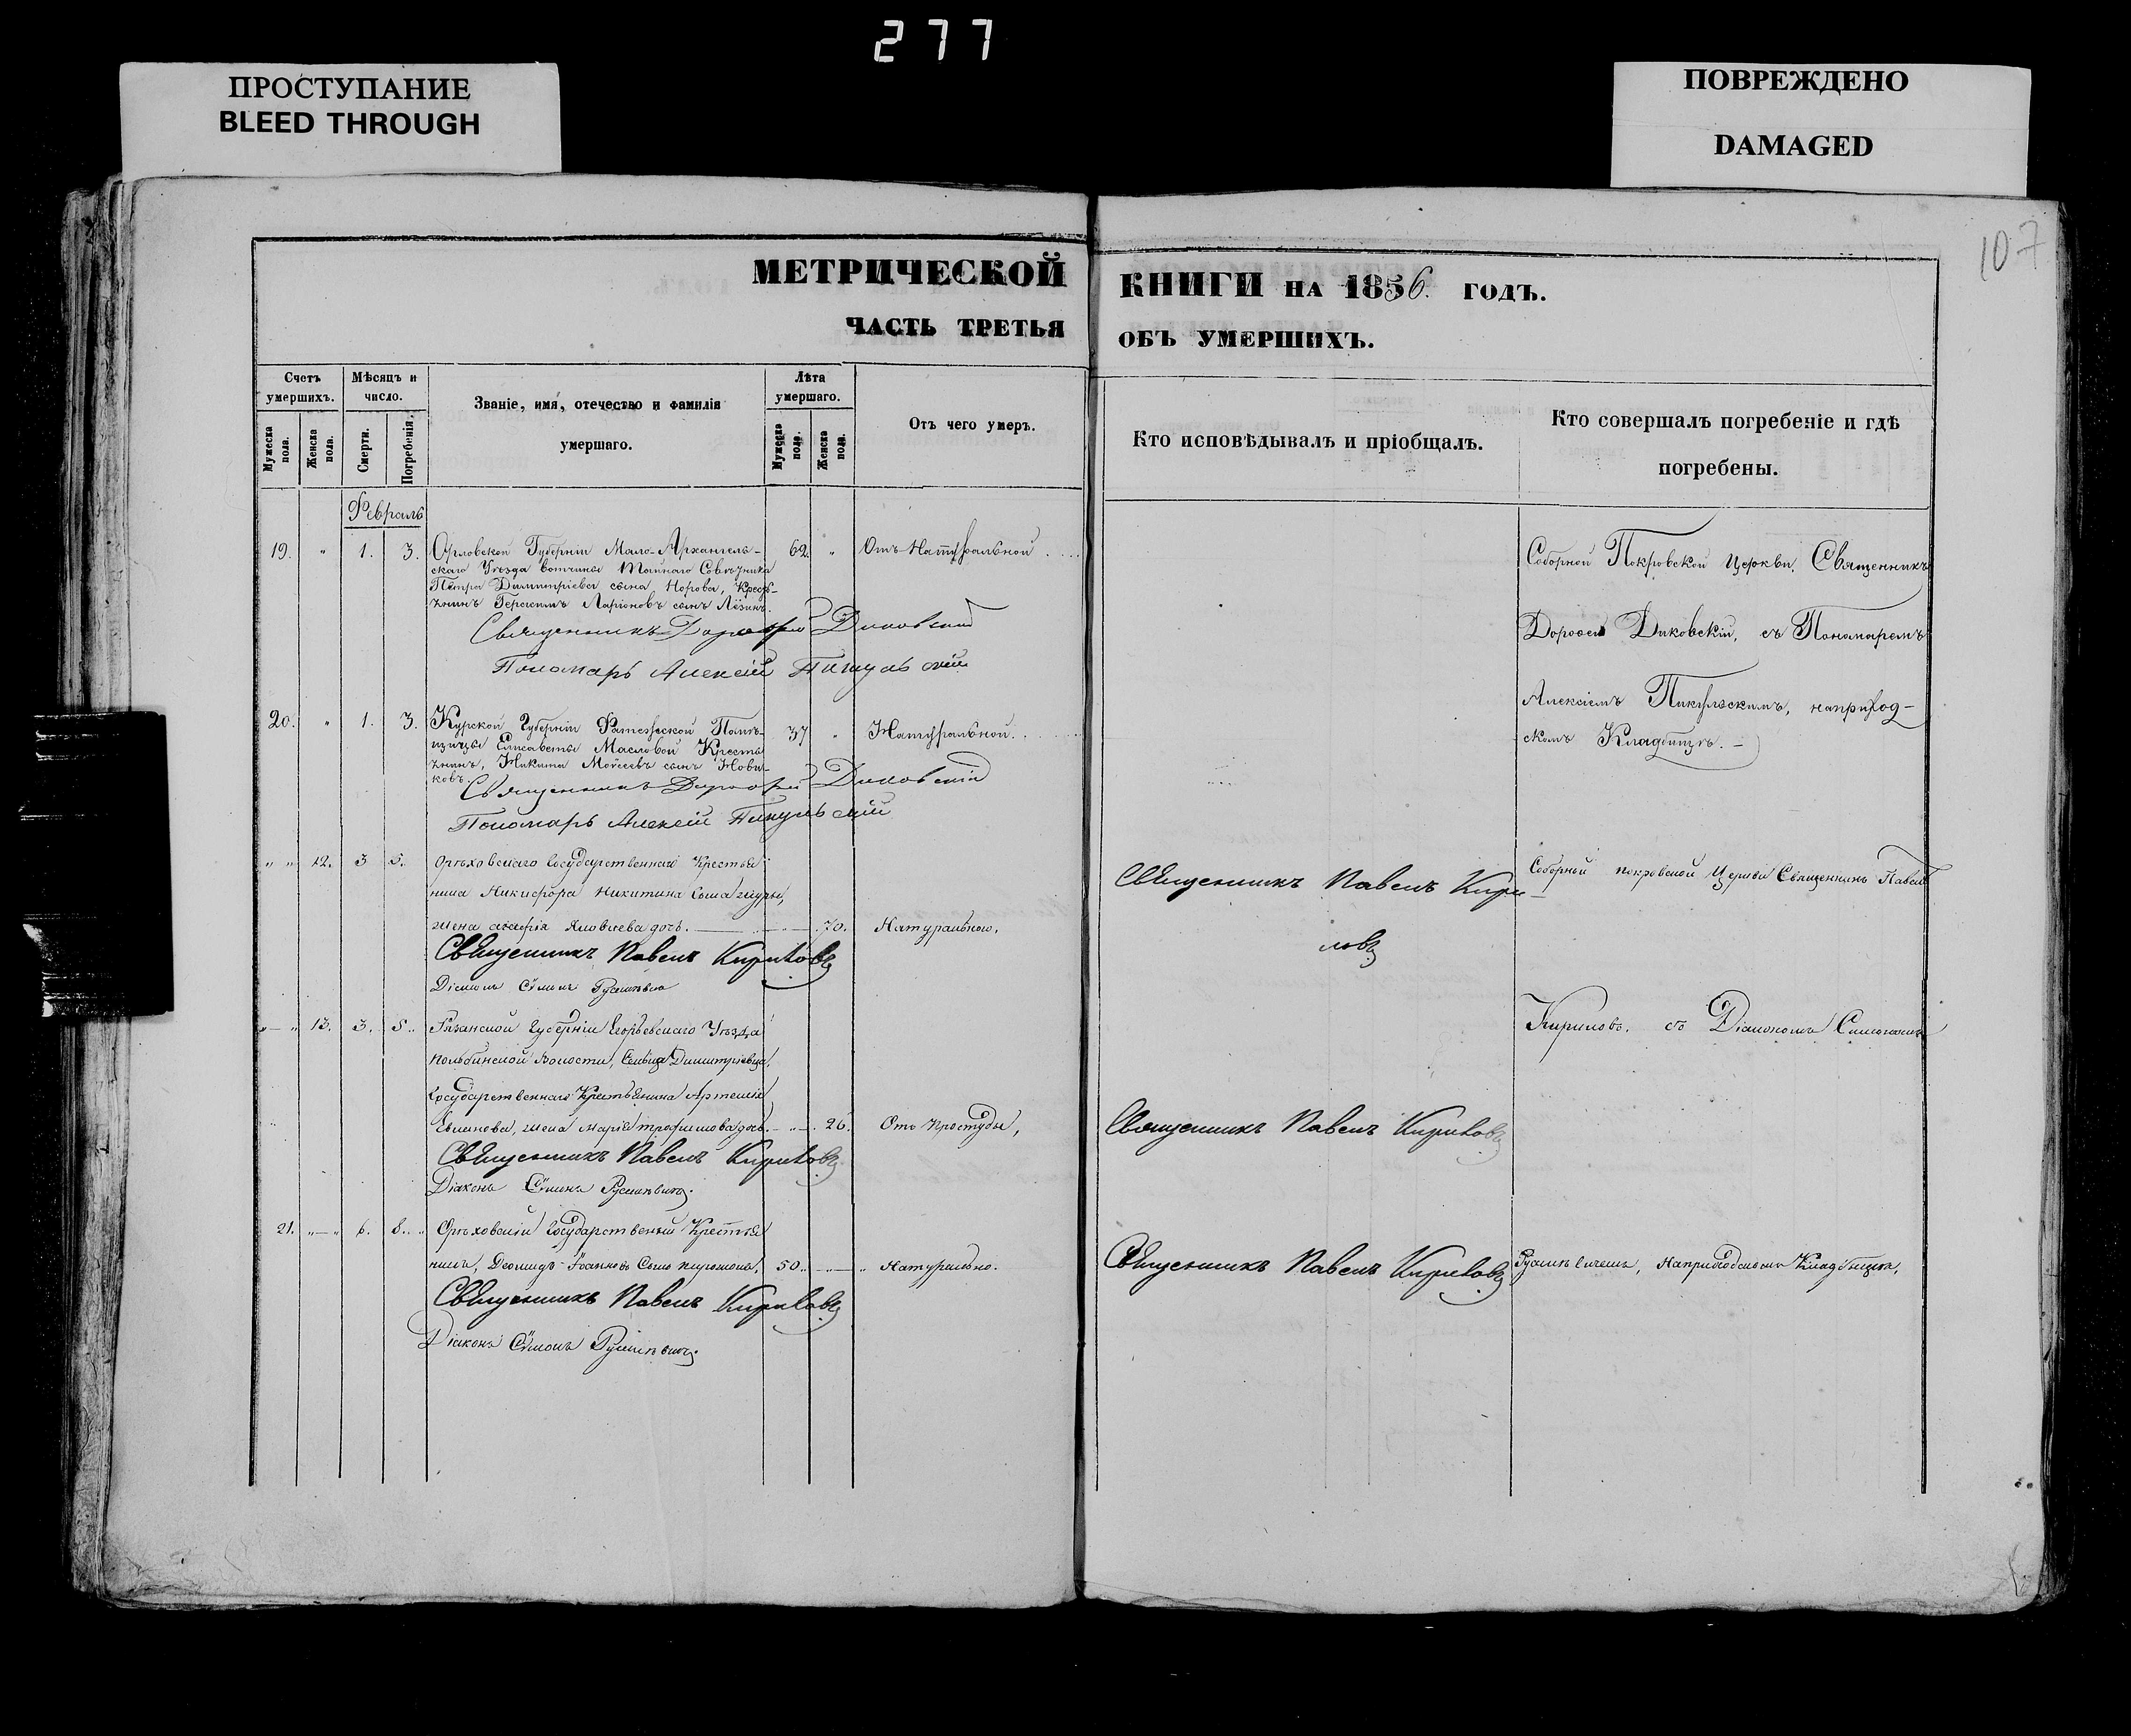 277
ПРОСТУПАНИЕ
BLEED THROUGH
ПОВРЕЖДЕНО
DAMAGED
107
МЕТРИЧЕСКОЙ
ЧАСТЬ ТРЕТЬЯ
КНИГИ НА 1856. ГОДЪ.
ОБЪ УМЕРШИХЪ.
Счетъ умершихъ.
Мужеска пола.
Женска пола.
Мѣсяцъ и число.
Смерти.
Погребенія.
Званіе, имя, отечество и фамилія
умершаго.
Лѣта умершаго.
Мужеска пола.
Женска пола.
Отъ чего умеръ.
Кто исповѣдывалъ и пріобщалъ.
Кто совершалъ погребеніе и гдѣ
погребены.
Февраль
19. " 1. 3. Орловской Губерніи Мало-Архангель- 62. " Отъ Натуральной
скаго Уѣзда вотчины Тайнаго Совѣтника
Петра Димитріева сына Норова, Кресть-
янинъ Герасимъ Ларіоновъ сынъ
Священникъ Дорофей Диковскій
Пономарь Алексій
20. " 1. 3. Курской Губерніи Фатежской Помѣ- 37 " Натуральной.
щицы Елисаветы Масловой Кресть
янинъ, Никита Моѵсеевъ сынъ Нови-
ковъ.
Священникъ Дорофей Диковскій
Пономарь Алексій
Соборной Покровской Церкви, Священникъ
Дорофей Диковскій, съ Пономаремъ
Алексіемъ наприход-
скомъ Кладбищѣ.
" " 12. 3 5. Орѣховскаго Государственнаго Крестья
нина Никифора Никитина Сына
жена Яковлева дочь. 70. Натурально.
Священникъ Павелъ Кириловъ
Діаконъ Сѵмонъ
Священникъ Павелъ Кири-
ловъ
Соборной покровской Церкви Священникъ Павелъ
" " 13. 3. 5. Рязанской Губерніи Егорьевскаго Уѣзда
Волости, Димитріевца,
Государственнаго Крестьянина Артемія
жена Марія трофимова дочь. 26. Отъ Простуды,
Священникъ Павелъ Кириловъ
Діаконъ Сѵмонъ
Священникъ Павелъ Кириловъ
Кириловъ. съ Діакономъ Симономъ
21. " " 6. 8. Орѣховскій Государственный Крестья
нинъ, Іоанновъ Сынъ 50. " Натурально.
Священникъ Павелъ Кириловъ
Діаконъ Сѵмонъ
Священникъ Павелъ Кириловъ
Наприходскомъ Кладбищѣ,